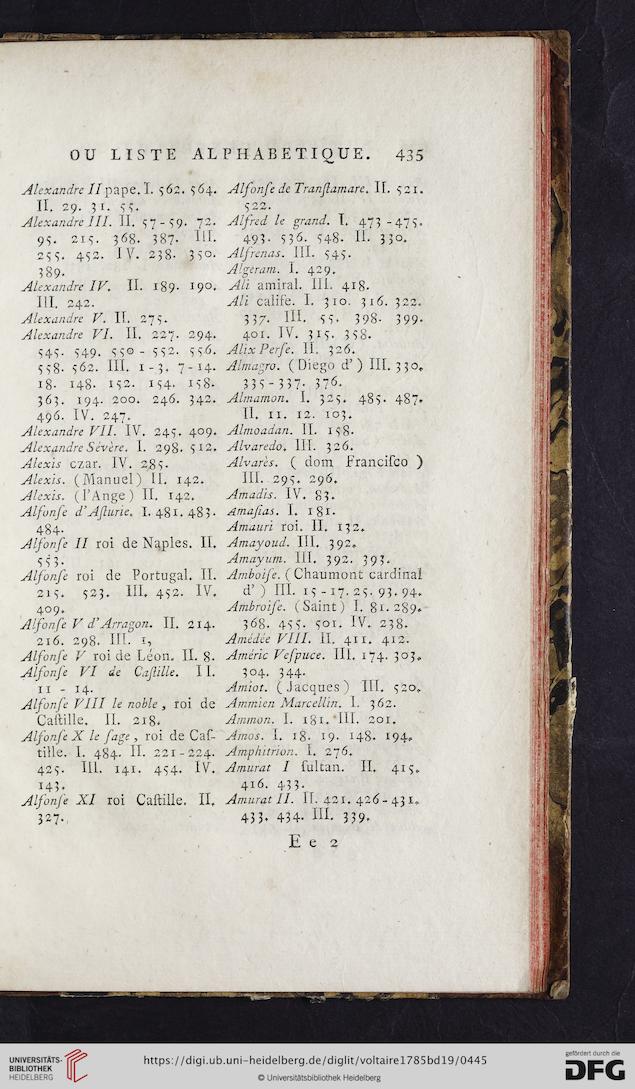 OU LISTE ALPHABETIQUE. 435
Alexandre II pape. I. 562. 564.
II. 29. 31. 55.
Alexandre III. II. 57-59. 72.
95. 215. 368. 387. III.
255. 452. IV. 238. 350.
389.
Alexandre IV. II. 189. 190.
III. 242.
Alexandre V. II. 275.
Alexandre VI. II. 227. 294.
545. 549. 550 - 552. 556.
558. 562. III. 1-3. 7-14.
18. 148. 152. 154. 158.
363. 194. 200. 246. 342.
496. IV. 247.
Alexandre VII. IV. 245. 409.
Alexandre Sévère. I. 298. 512.
Alexis czar. IV. 285.
Alexis. (Manuel) II. 142.
Alexis. (l'Ange) II. 142.
Alfonſe d'Aſturie. I. 481. 483.
484.
Alfonſe II roi de Naples. II.
553.
Alfonſe roi de Portugal. II.
215. 523. III. 452. IV.
409.
Alfonſe V d'Arragon. II. 214.
216. 298. III. 1,
Alfonſe V roi de Léon. II. 8.
Alfonſe VI de Caſtille. II.
11 - 14.
Alfonſe VIII le noble, roi de
Caſtille. II. 218.
Alfonſe X le ſage, roi de Caſ-
tille. I. 484. II. 221-224.
425. III. 141. 454. IV.
143.
Alfonſe XI roi Caſtille. II.
327.
Alfonſe de Tranſtamare. II. 521.
522.
Alfred le grand. I. 473-475.
493. 536. 548. II. 330.
Alfrenas. III. 545.
Algeram. I. 429.
Ali amiral. III. 418.
Ali calife. I. 310. 316. 322.
337. III. 55. 398. 399.
401. IV. 315. 358.
Alix Perſe. II. 326.
Almagro. (Diego d') III. 330.
335-337. 376.
Almamon. I. 325. 485. 487.
II. 11. 12. 103.
Almoadan. II. 158.
Alvaredo. III. 326.
Alvarès. ( dom Franciſco )
III. 295. 296.
Amadis. IV. 83.
Amaſias. I. 181.
Amauri roi. II. 132.
Amayoud. III. 392.
Amayum. III. 392. 393.
Amboiſe. (Chaumont cardinal
d') III. 15-17. 25. 93. 94.
Ambroiſe. (Saint) I. 81. 289.
368. 455. 501. IV. 238.
Amédée VIII. II. 411. 412.
Améric Veſpuce. III. 174. 303.
304. 344.
Amiot. (Jacques) III. 520.
Ammien Marcellin. I. 362.
Ammon. I. 181. III. 201.
Amos. I. 18. 19. 148. 194.
Amphitrion. I. 276.
Amurat I ſultan. II. 415.
416. 433.
Amurat II. II. 421. 426-431.
433. 434. III. 339.
E e 2
UNIVERSITÄTS-
BIBLIOTHEK
HEIDELBERG
https://digi.ub.uni-heidelberg.de/diglit/voltaire1785bd19/0445
© Universitätsbibliothek Heidelberg
gefördert durch die
DFG